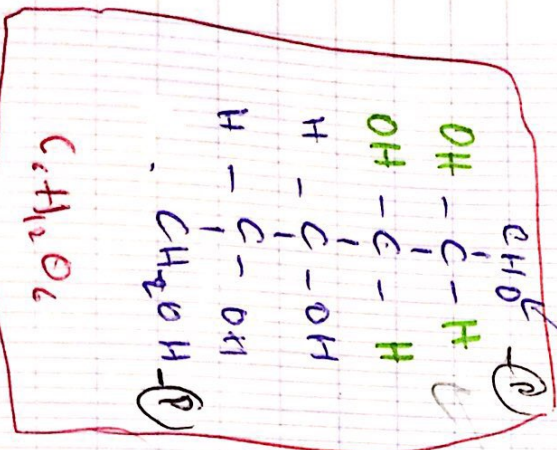 CHO
OH - C - H
OH - C - H
H - C - OH
H - C - OH
CH2OH
C6H12O6